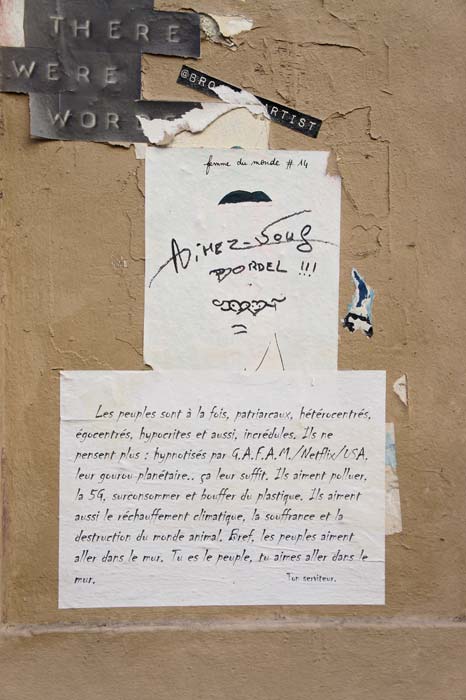 THERE
WERE
WOR
@BRO ARTIST
femme du monde # 14
AiMEZ-VOUS
BORDEL !!!
Les peuples sont à la fois, patriarcaux, hétérocentrés,
égocentrés, hypocrites et aussi, incrédules. Ils ne
pensent plus : hypnotisés par G.A.F.A.M./Netflix/USA,
leur gourou planétaire.. ça leur suffit. Ils aiment polluer,
la 5G, surconsommer et bouffer du plastique. Ils aiment
aussi le réchauffement climatique, la souffrance et la
destruction du monde animal. Bref, les peuples aiment
aller dans le mur. Tu es le peuple, tu aimes aller dans le
mur.
Ton serviteur.